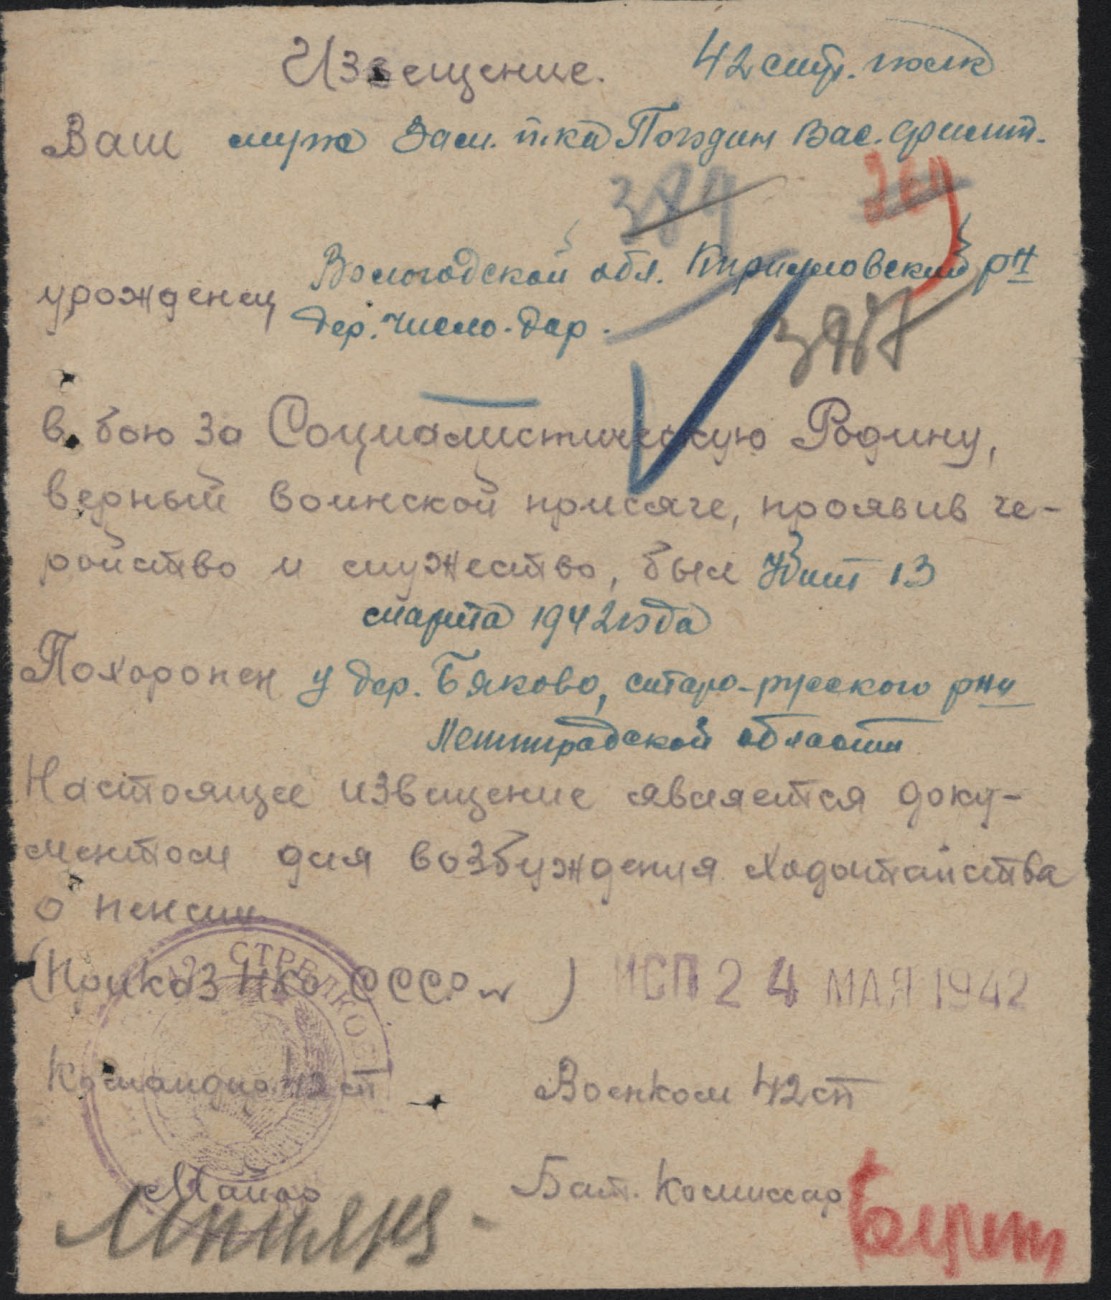 Извещение. 42 стр. полк
Ваш муж Зам. п-ка Погодин Вас. Филип.
389
269
урожденец Вологодской обл. Кирилловский р-н
дер. Число-дар.
397
в бою за Социалистическую Родину,
верный воинской присяге, проявив ге-
ройство и мужество, был Убит 13
марта 1942 года
Похоронен у дер. Бяково, старо-русского р-на
Ленинградской области
Настоящее извещение является доку-
ментом для возбуждения ходотайства
о пенсии.
(Приказ НКО СССР № )
ИСП 24 МАЯ 1942
СТРЕЛКОВ
Командир 42 сп Военком 42 сп
Майор Бат. Комиссар